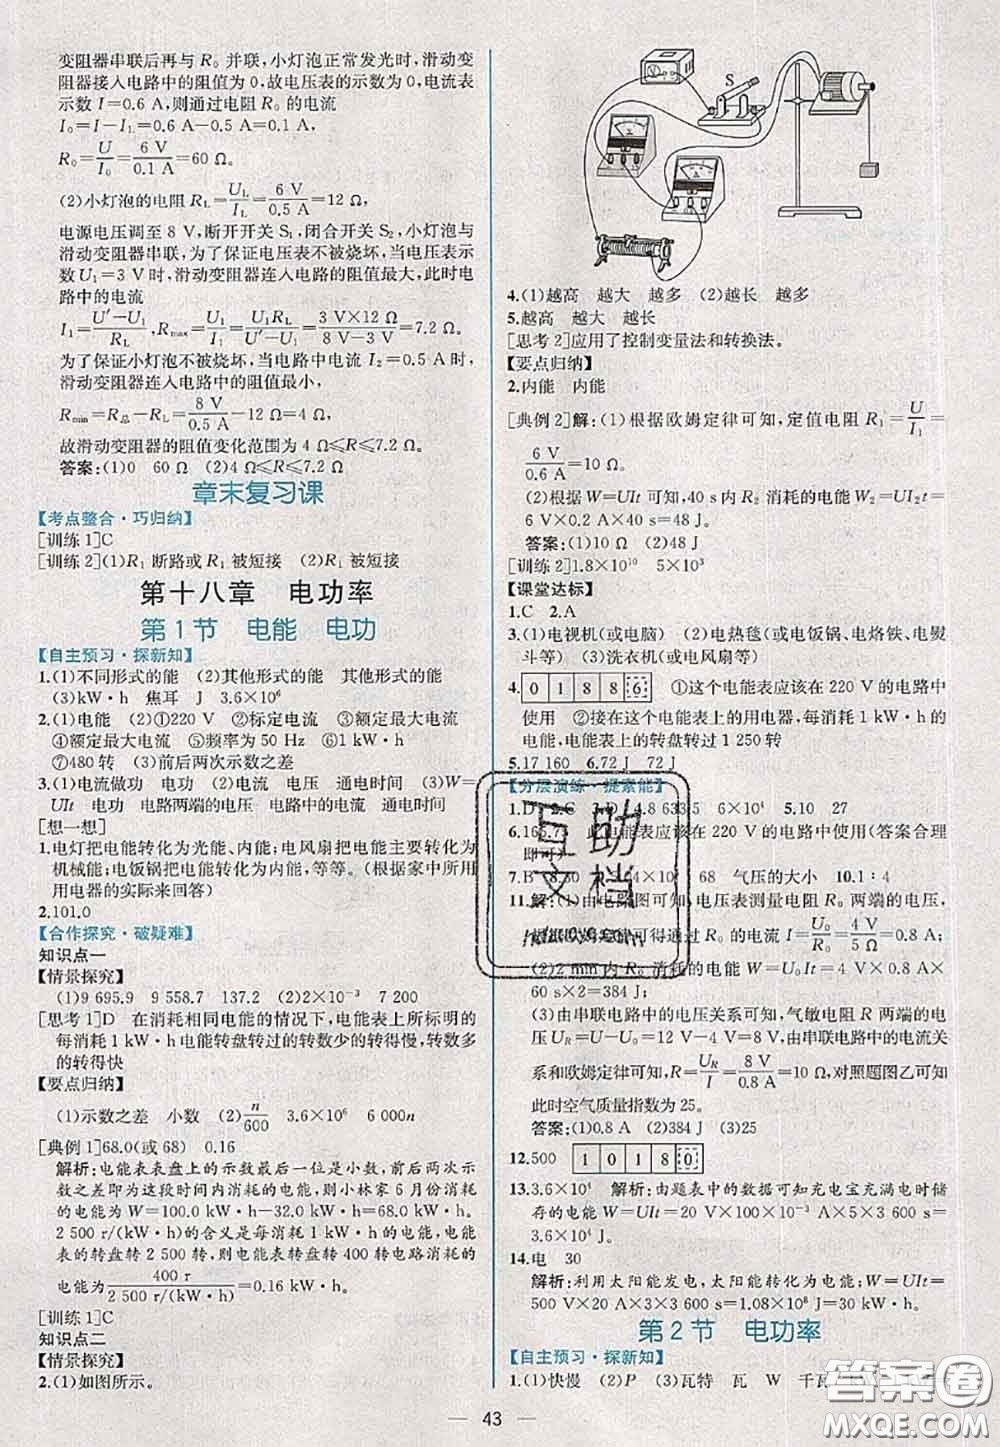 变阻器串联后再与 R₀ 并联,小灯泡正常发光时,滑动变
阻器接入电路中的阻值为 0,故电压表的示数为 0,电流表
示数 I=0.6 A,则通过电阻 R₀ 的电流
I₀=I-I_L=0.6 A-0.5 A=0.1 A,
R₀=U/I₀=6 V/0.1 A=60 Ω。
(2)小灯泡的电阻 R_L=U_L/I_L=6 V/0.5 A=12 Ω,
电源电压调至 8 V,断开开关 S₁,闭合开关 S₂,小灯泡与
滑动变阻器串联,为了保证电压表不被烧坏,当电压表示
数 U₁=3 V 时,滑动变阻器连入电路的阻值最大,此时电
路中的电流
I₁=(U′-U₁)/R_L,R_max=U₁/I₁=U₁R_L/(U′-U₁)=(3 V×12 Ω)/(8 V-3 V)=7.2 Ω。
为了保证小灯泡不被烧坏,当电路中电流 I₂=0.5 A 时,
滑动变阻器连入电路中的阻值最小,
R_min=R总-R_L=8 V/0.5 A-12 Ω=4 Ω,
故滑动变阻器的阻值变化范围为 4 Ω≤R≤7.2 Ω。
答案:(1)0 60 Ω (2)4 Ω≤R≤7.2 Ω
章末复习课
【考点整合·巧归纳】
[训练 1]C
[训练 2](1)R₁ 断路或 R₁ 被短接 (2)R₁ 被短接
第十八章 电功率
第 1 节 电能 电功
【自主预习·探新知】
1.(1)不同形式的能 (2)其他形式的能 其他形式的能
(3)kW·h 焦耳 J 3.6×10⁶
2.(1)电能 (2)①220 V ②标定电流 ③额定最大电流
④额定最大电流 ⑤频率为 50 Hz ⑥1 kW·h
⑦480 转 (3)前后两次示数之差
3.(1)电流做功 电功 (2)电流 电压 通电时间 (3)W=
UIt 电功 电路两端的电压 电路中的电流 通电时间
[想一想]
1.电灯把电能转化为光能、内能;电风扇把电能主要转化为
机械能;电饭锅把电能转化为内能,等等。(根据家中所用
用电器的实际来回答)
2.101.0
【合作探究·破疑难】
知识点一
【情景探究】
(1)9 695.9 9 558.7 137.2 (2)2×10⁻³ 7 200
[思考 1]D 在消耗相同电能的情况下,电能表上所标明的
每消耗 1 kW·h电能转盘转过的转数少的转得慢,转数多
的转得快
【要点归纳】
(1)示数之差 小数 (2)n/600 3.6×10⁶ 6 000n
[典例 1]68.0(或 68) 0.16
解析:电能表表盘上的示数最后一位是小数,前后两次
示数之差即为这段时间内消耗的电能,则小林家 6 月份消
耗的电能为 W=100.0 kW·h-32.0 kW·h=68.0 kW·h。
2 500 r/(kW·h)的含义是每消耗 1 kW·h 的电能,电能
表的转盘转 2 500 转,则电能表转盘转 400 转电路消耗的
电能为400 r/(2 500 r/(kW·h))=0.16 kW·h。
[训练 1]C
知识点二
【情景探究】
2.(1)如图所示。
S
4.(1)越高 越大 越多 (2)越长 越多
5.越高 越大 越长
[思考 2]应用了控制变量法和转换法。
【要点归纳】
2.内能 内能
[典例 2]解:(1)根据欧姆定律可知,定值电阻 R₁=U/I₁=
6 V/0.6 A=10 Ω。
(2)根据 W=UIt 可知,40 s内 R₂ 消耗的电能 W₂=UI₂t=
6 V×0.2 A×40 s=48 J。
答案:(1)10 Ω (2)48 J
[训练 2]1.8×10¹⁰ 5×10³
【课堂达标】
1.C 2.A
3.(1)电视机(或电脑) (2)电热毯(或电饭锅、电烙铁、电熨
斗等) (3)洗衣机(或电风扇等)
4. 0 1 8 8 6 ①这个电能表应该在 220 V 的电路中
使用 ②接在这个电能表上的用电器,每消耗 1 kW·h的
电能,电能表上的转盘转过 1 250 转
5.17 160 6.72 J 72 J
【分层演练·提素能】
1.D 2.C 3.D 4.8 633.5 6×10⁴ 5.10 27
6. 此电能表应该在 220 V 的电路中使用(答案合理
即可)
7.B 8.30 68 气压的大小 10.1∶4
11.解:(1)由电路图可知,电压表测量电阻 R₀ 两端的电压,
根据欧姆定律可得通过 R₀ 的电流 I=U₀/R₀=4 V/5 Ω=0.8 A;
(2)2 min 内 R₀ 消耗的电能 W=U₀It=4 V×0.8 A×
60 s×2=384 J;
(3)由串联电路中的电压关系可知,气敏电阻 R 两端的电
压 U_R=U-U₀=12 V-4 V=8 V,由串联电路中的电流关
系和欧姆定律可知,R=U_R/I=8 V/0.8 A=10 Ω,对照题图乙可知
此时空气质量指数为 25。
答案:(1)0.8 A (2)384 J (3)25
12.500 1 0 1 8 0
13.3.6×10⁴ 解析:由题表中的数据可知充电宝充满电时储
存的电能为 W=UIt=20 V×1000×10⁻³ A×5×3 600 s=
3.6×10⁴ J。
14.电 30
解析:利用太阳能发电,太阳能转化为电能;W=UIt=
500 V×20 A×3×3 600 s=1.08×10⁸ J=30 kW·h。
第 2 节 电功率
【自主预习·探新知】
1.(1)快慢 (2)P (3)瓦特 瓦 W 千瓦
43
互助
文档
答案圈
MXQE.COM